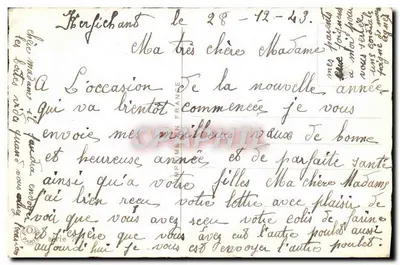 Kerfichant le 28-12-43
Ma très chère Madame
A L'occasion de la nouvelle année
qui va bientôt commencée je vous
envoie mes meilleur vœux de bonne
et heureuse année et de parfaite sante
ainsi qu'a votre filles Ma chère Madame
j'ai bien reçu votre lettre avec plaisir de
voir que vous avez reçu votre colis de farine
et j'espère que vous avez eut l'autre poulet aussi
aujourd'hui je vous est envoyer l'autre poulet
mes parents
se joint
a moi pour
vous
chère madame il faudra
les